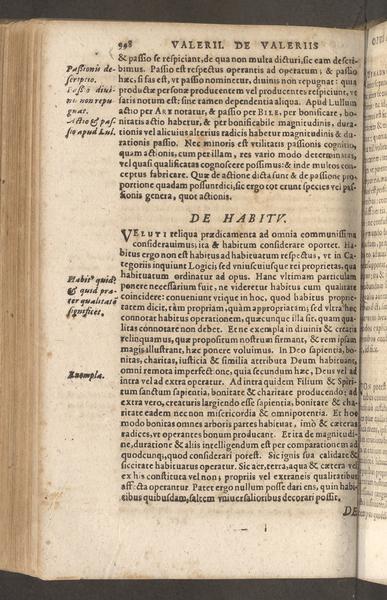 998 VALERII. DE VALERIIS
& passio se respiciant, de qua non multa dicturi, sic eam descri-
bimus. Passio est respectus operantis ad operatum; & passio
hæc, si fas est, vt passio nominetur, diuinis non repugnat: quia
productæ personæ producentem vel producentes respiciunt, vt
satis notum est: sine tamen dependentia aliqua. Apud Lullum
actio per ARE notatur, & passio per BILE, per bonificare, bo-
nitatis actio habetur, & per bonificabile magnitudinis, dura-
tionis vel alicuius alterius radicis habetur magnitudinis & du-
rationis passio. Nec minoris est vtilitatis passionis cognitio,
quam actionis, cum per illam, res vario modo determinatas,
vel quasi qualificatas cognoscere possimus: & inde multos con-
ceptus fabricare. Quæ de actione dicta sunt & de passione pro-
portione quadam possunt dici, sic ergo tot erunt species vel pas-
sionis genera, quot actionis.
Passionis de-
scriptio.
Passio diui-
nis non repu-
gnat.
Actio & pas-
sio apud Lul.
DE HABITV.
VELVTI reliqua prædicamenta ad omnia communissima
considerauimus; ita & habitum considerare oportet. Ha-
bitus ergo non est habitus ad habituatum respectus, vt in Ca-
tegoriis inquiunt Logici, sed vniuscuiusque rei proprietas, qua
habituatum ordinatur ad opus. Hanc vltimam particulam
ponere necessarium fuit, ne videretur habitus cum qualitate
coincidere: conueniunt vtique in hoc, quod habitus proprie-
tatem dicit, tàm propriam, quàm appropriatam; sed vltra hoc
connotat habitus operationem, quæcunque illa sit, quam qua-
litas connotare non debet. Et ne exempla in diuinis & creatis
relinquamus, quæ propositum nostrum firmant, & rem ipsam
magis illustrant, hæc ponere voluimus. In Deo sapientia, bo-
nitas, charitas, iustitia & similia attributa Deum habituant,
omni remota imperfectione, quia secundum hæc, Deus vel ad
intra vel ad extra operatur. Ad intra quidem Filium & Spiri-
tum sanctum sapientia, bonitate & charitate producendo: ad
extra verò, creaturis largiendo esse sapientia, bonitate & cha-
ritate eadem nec non misericordia & omnipotentia. Et hoc
modo bonitas omnes arboris partes habituat, imò & cæteras
radices, vt operantes bonum producant. Et ita de magnitudi-
ne, duratione & aliis intelligendum est per comparationem ad
quodcunque, quod considerari potest. Sic ignis sua caliditate &
siccitate habituatus operatur. Sic aer, terra, aqua & cætera vel
ex his constituta vel non; propriis vel extraneis qualitatibus
affecta operantur. Patet ergo nullum posse dari ens, quin habi-
tibus quibusdam, saltem vniuersalioribus decorari possit.
Habitus quid?
& quid præ-
ter qualitatē
significet.
Exempla.
DE